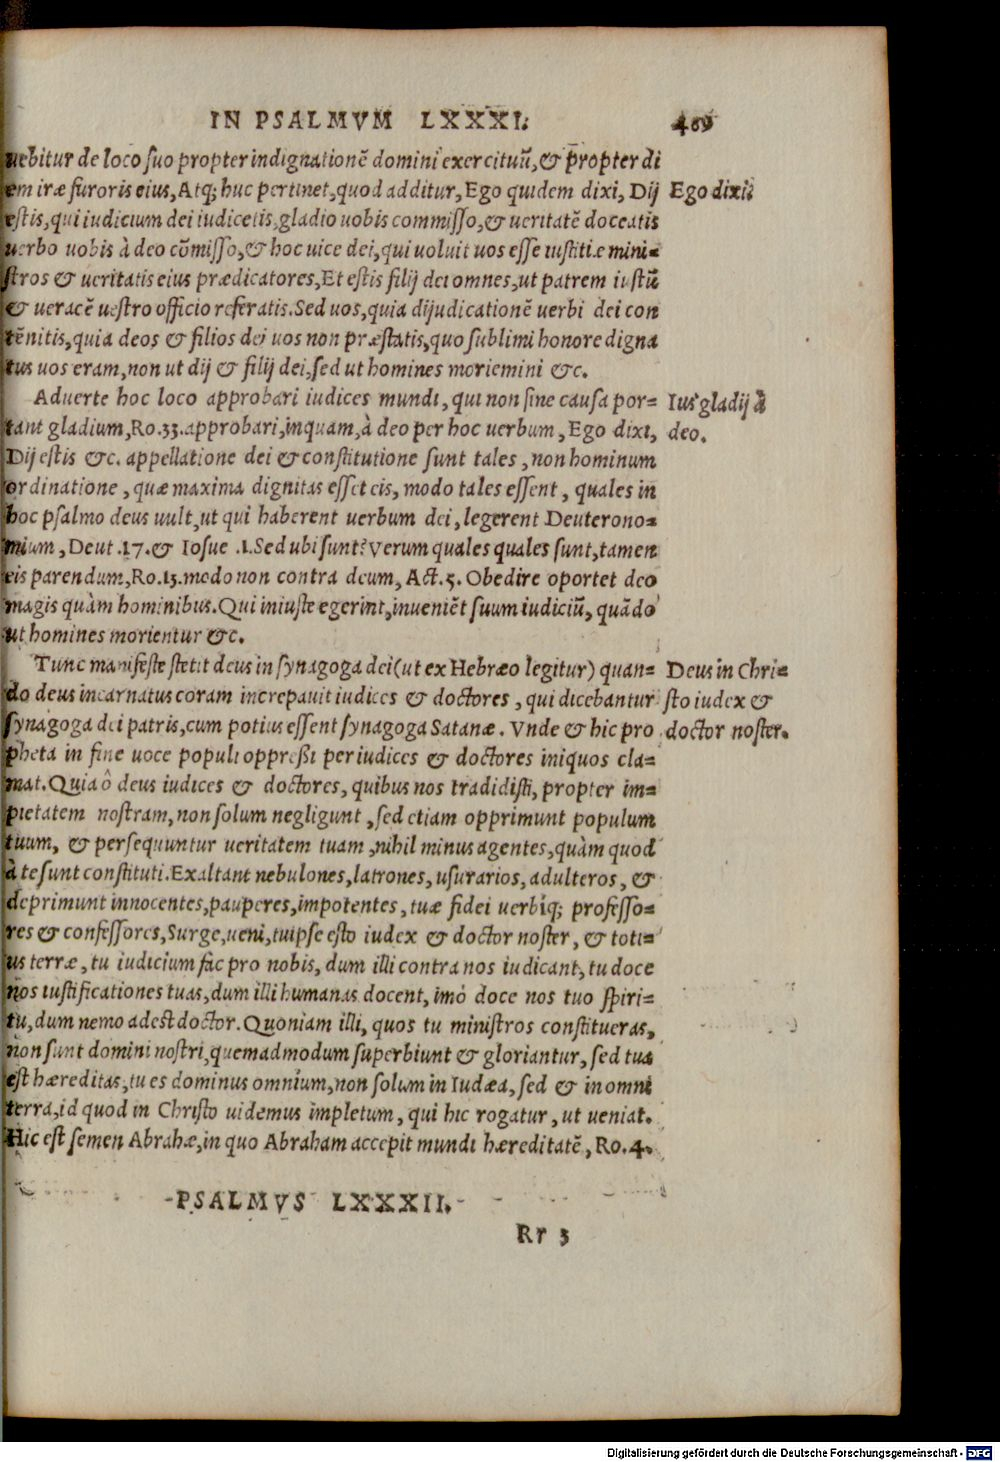 IN PSALMVM LXXXI.
uebitur de loco suo propter indignationē domini exercituū, & propter di
em iræ furoris eius, Atq; huc pertinet, quod additur, Ego quidem dixi, Dij
Ego dixi
estis, qui iudicium dei iudicetis, gladio uobis commisso, & ueritatē doceatis
uerbo uobis à deo cōmisso, & hoc uice dei, qui uoluit uos esse iustitiæ mini-
stros & ueritatis eius prædicatores, Et estis filij dei omnes, ut patrem iustū
& ueracē uestro officio referatis. Sed uos, quia dijudicationē uerbi dei con
tēnitis, quia deos & filios dei uos non præstatis, quo sublimi honore digna
tus uos eram, non ut dij & filij dei, sed ut homines moriemini &c.
Aduerte hoc loco approbari iudices mundi, qui non sine causa por-
Ius gladij à
tant gladium, Ro. 33. approbari, inquam, à deo per hoc uerbum, Ego dixi,
deo.
Dij estis &c. appellatione dei & constitutione sunt tales, non hominum
ordinatione, quæ maxima dignitas esset eis, modo tales essent, quales in
hoc psalmo deus uult, ut qui haberent uerbum dei, legerent Deuterono-
mium, Deut. 17. & Iosue .1. Sed ubi sunt? Verum quales quales sunt, tamen
eis parendum, Ro. 13. modo non contra deum, Act. 5. Obedire oportet deo
magis quàm hominibus. Qui iniuste egerint, inueniēt suum iudiciū, quādo
ut homines morientur &c.
Tunc manifeste stetit deus in synagoga dei (ut ex Hebræo legitur) quan-
Deus in Chri-
do deus incarnatus coram increpauit iudices & doctores, qui dicebantur
sto iudex &
synagoga dei patris, cum potius essent synagoga Satanæ. Vnde & hic pro
doctor noster.
pheta in fine uoce populi oppreßi per iudices & doctores iniquos cla-
mat. Quia ô deus iudices & doctores, quibus nos tradidisti, propter im-
pietatem nostram, non solum negligunt, sed etiam opprimunt populum
tuum, & persequuntur ueritatem tuam, nihil minus agentes, quàm quod
à te sunt constituti. Exaltant nebulones, latrones, usurarios, adulteros, &
deprimunt innocentes, pauperes, impotentes, tuæ fidei uerbiq; professo-
res & confessores, Surge, ueni, tuipse esto iudex & doctor noster, & toti-
us terræ, tu iudicium fac pro nobis, dum illi contra nos iudicant, tu doce
nos iustificationes tuas, dum illi humanas docent, imò doce nos tuo spiri-
tu, dum nemo adest doctor. Quoniam illi, quos tu ministros constitueras,
non sunt domini nostri, quemadmodum superbiunt & gloriantur, sed tua
est hæreditas, tu es dominus omnium, non solum in Iudæa, sed & in omni
terra, id quod in Christo uidemus impletum, qui hic rogatur, ut ueniat.
Hic est semen Abrahæ, in quo Abraham accepit mundi hæreditatē, Ro. 4.
PSALMVS LXXXII.
Rr 3
Digitalisierung gefördert durch die Deutsche Forschungsgemeinschaft - DFG